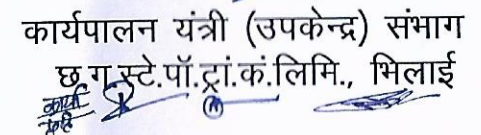 कार्यपालन यंत्री (उपकेन्द्र) संभाग
छ.ग.स्टे.पॉ.ट्रां.कं.लिमि., भिलाई